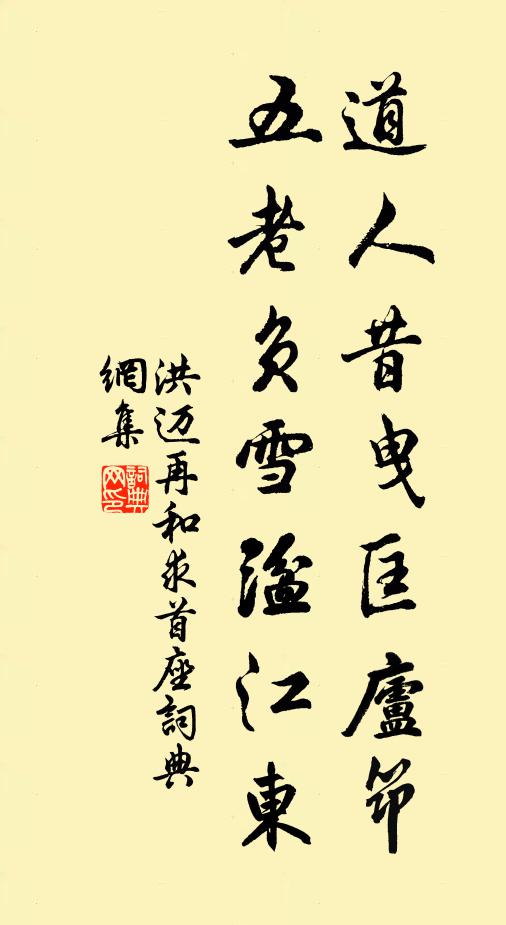 道人昔曳匡廬筇
五老负雪湓江東
洪迈再和求首座詞典
網集
詞典
网印